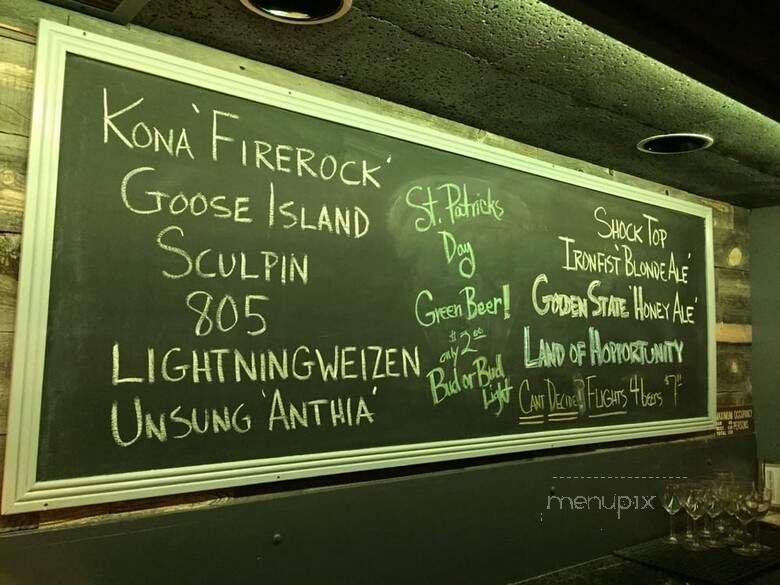 KONA 'FIREROCK'
GOOSE ISLAND
SCULPIN
805
LIGHTNINGWEIZEN
UNSUNG 'ANTHIA'
St. Patricks
Day
Green Beer!
only $2.00
Bud or Bud
Light
SHOCK TOP
IRONFIST 'BLONDE ALE'
GOLDEN STATE 'HONEY ALE'
LAND OF HOPPORTUNITY
CANT DECIDE? FLIGHTS 4 beers $7.00
MAXIMUM OCCUPANCY
PERSONS
menupix